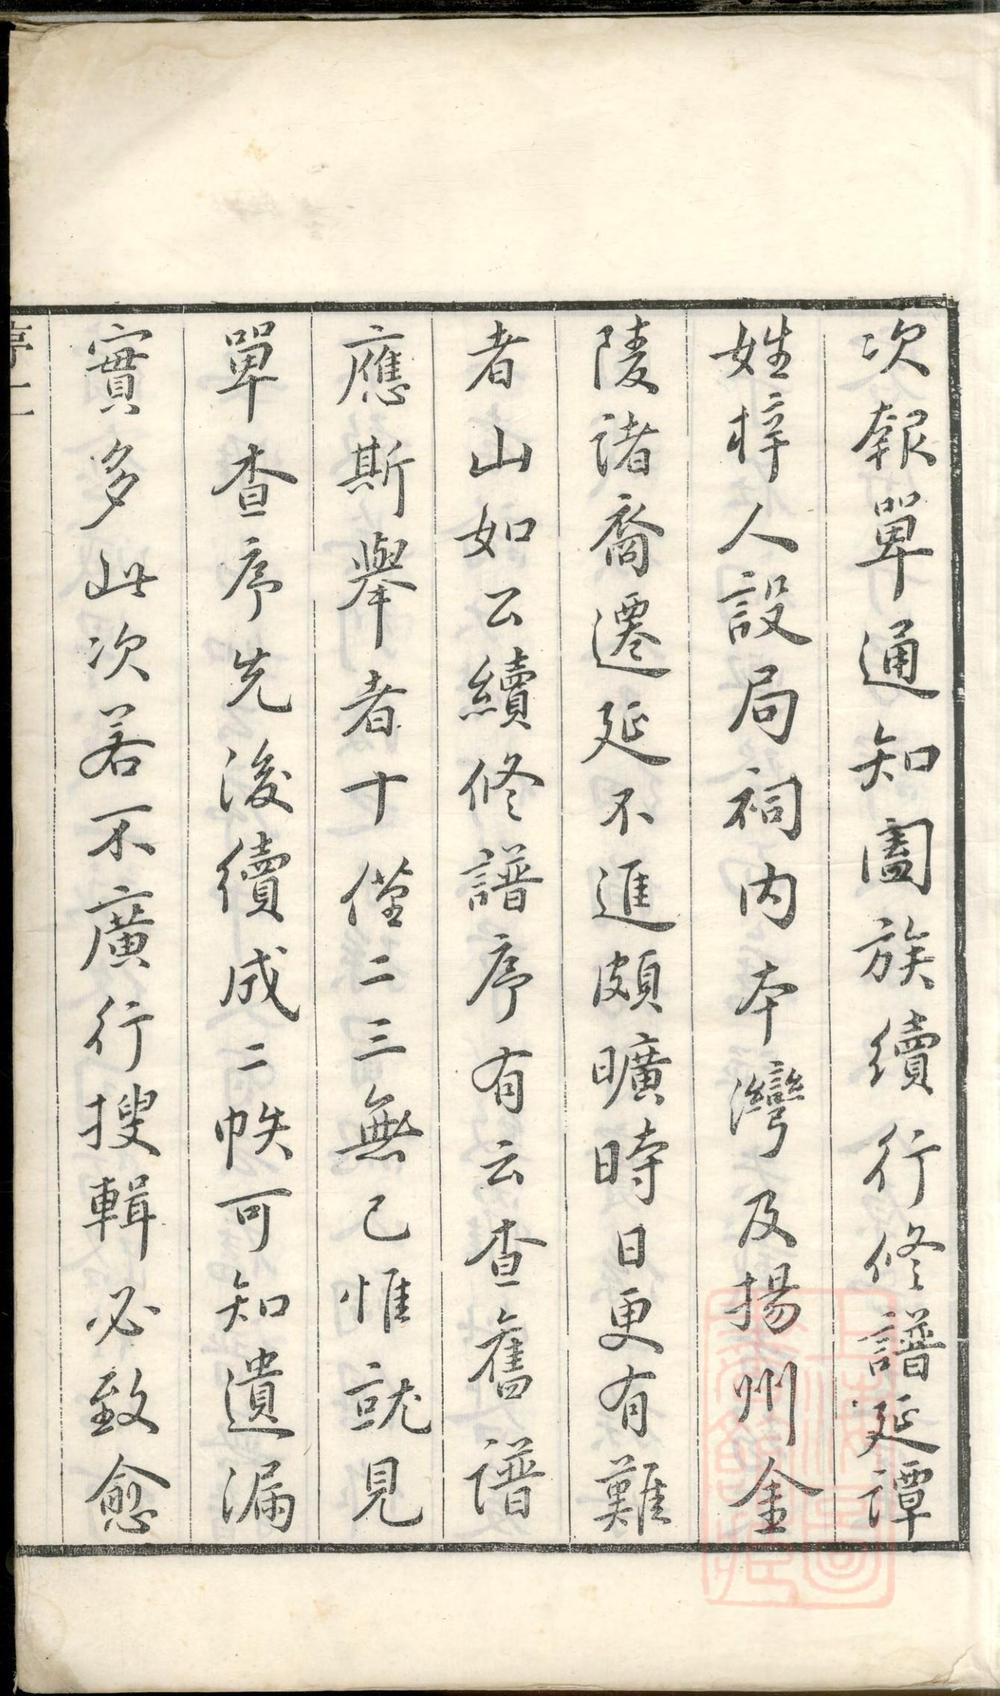 次報單通知闔族續行修譜延譚
姓梓人設局祠内本灣及揚州金
陵諸裔遷延不進頗曠時日更有難
者山如公續修譜序有云查舊譜
應斯舉者十僅二三無已惟就見
單查序先後續成二帙可知遺漏
實多此次若不廣行搜輯必致愈